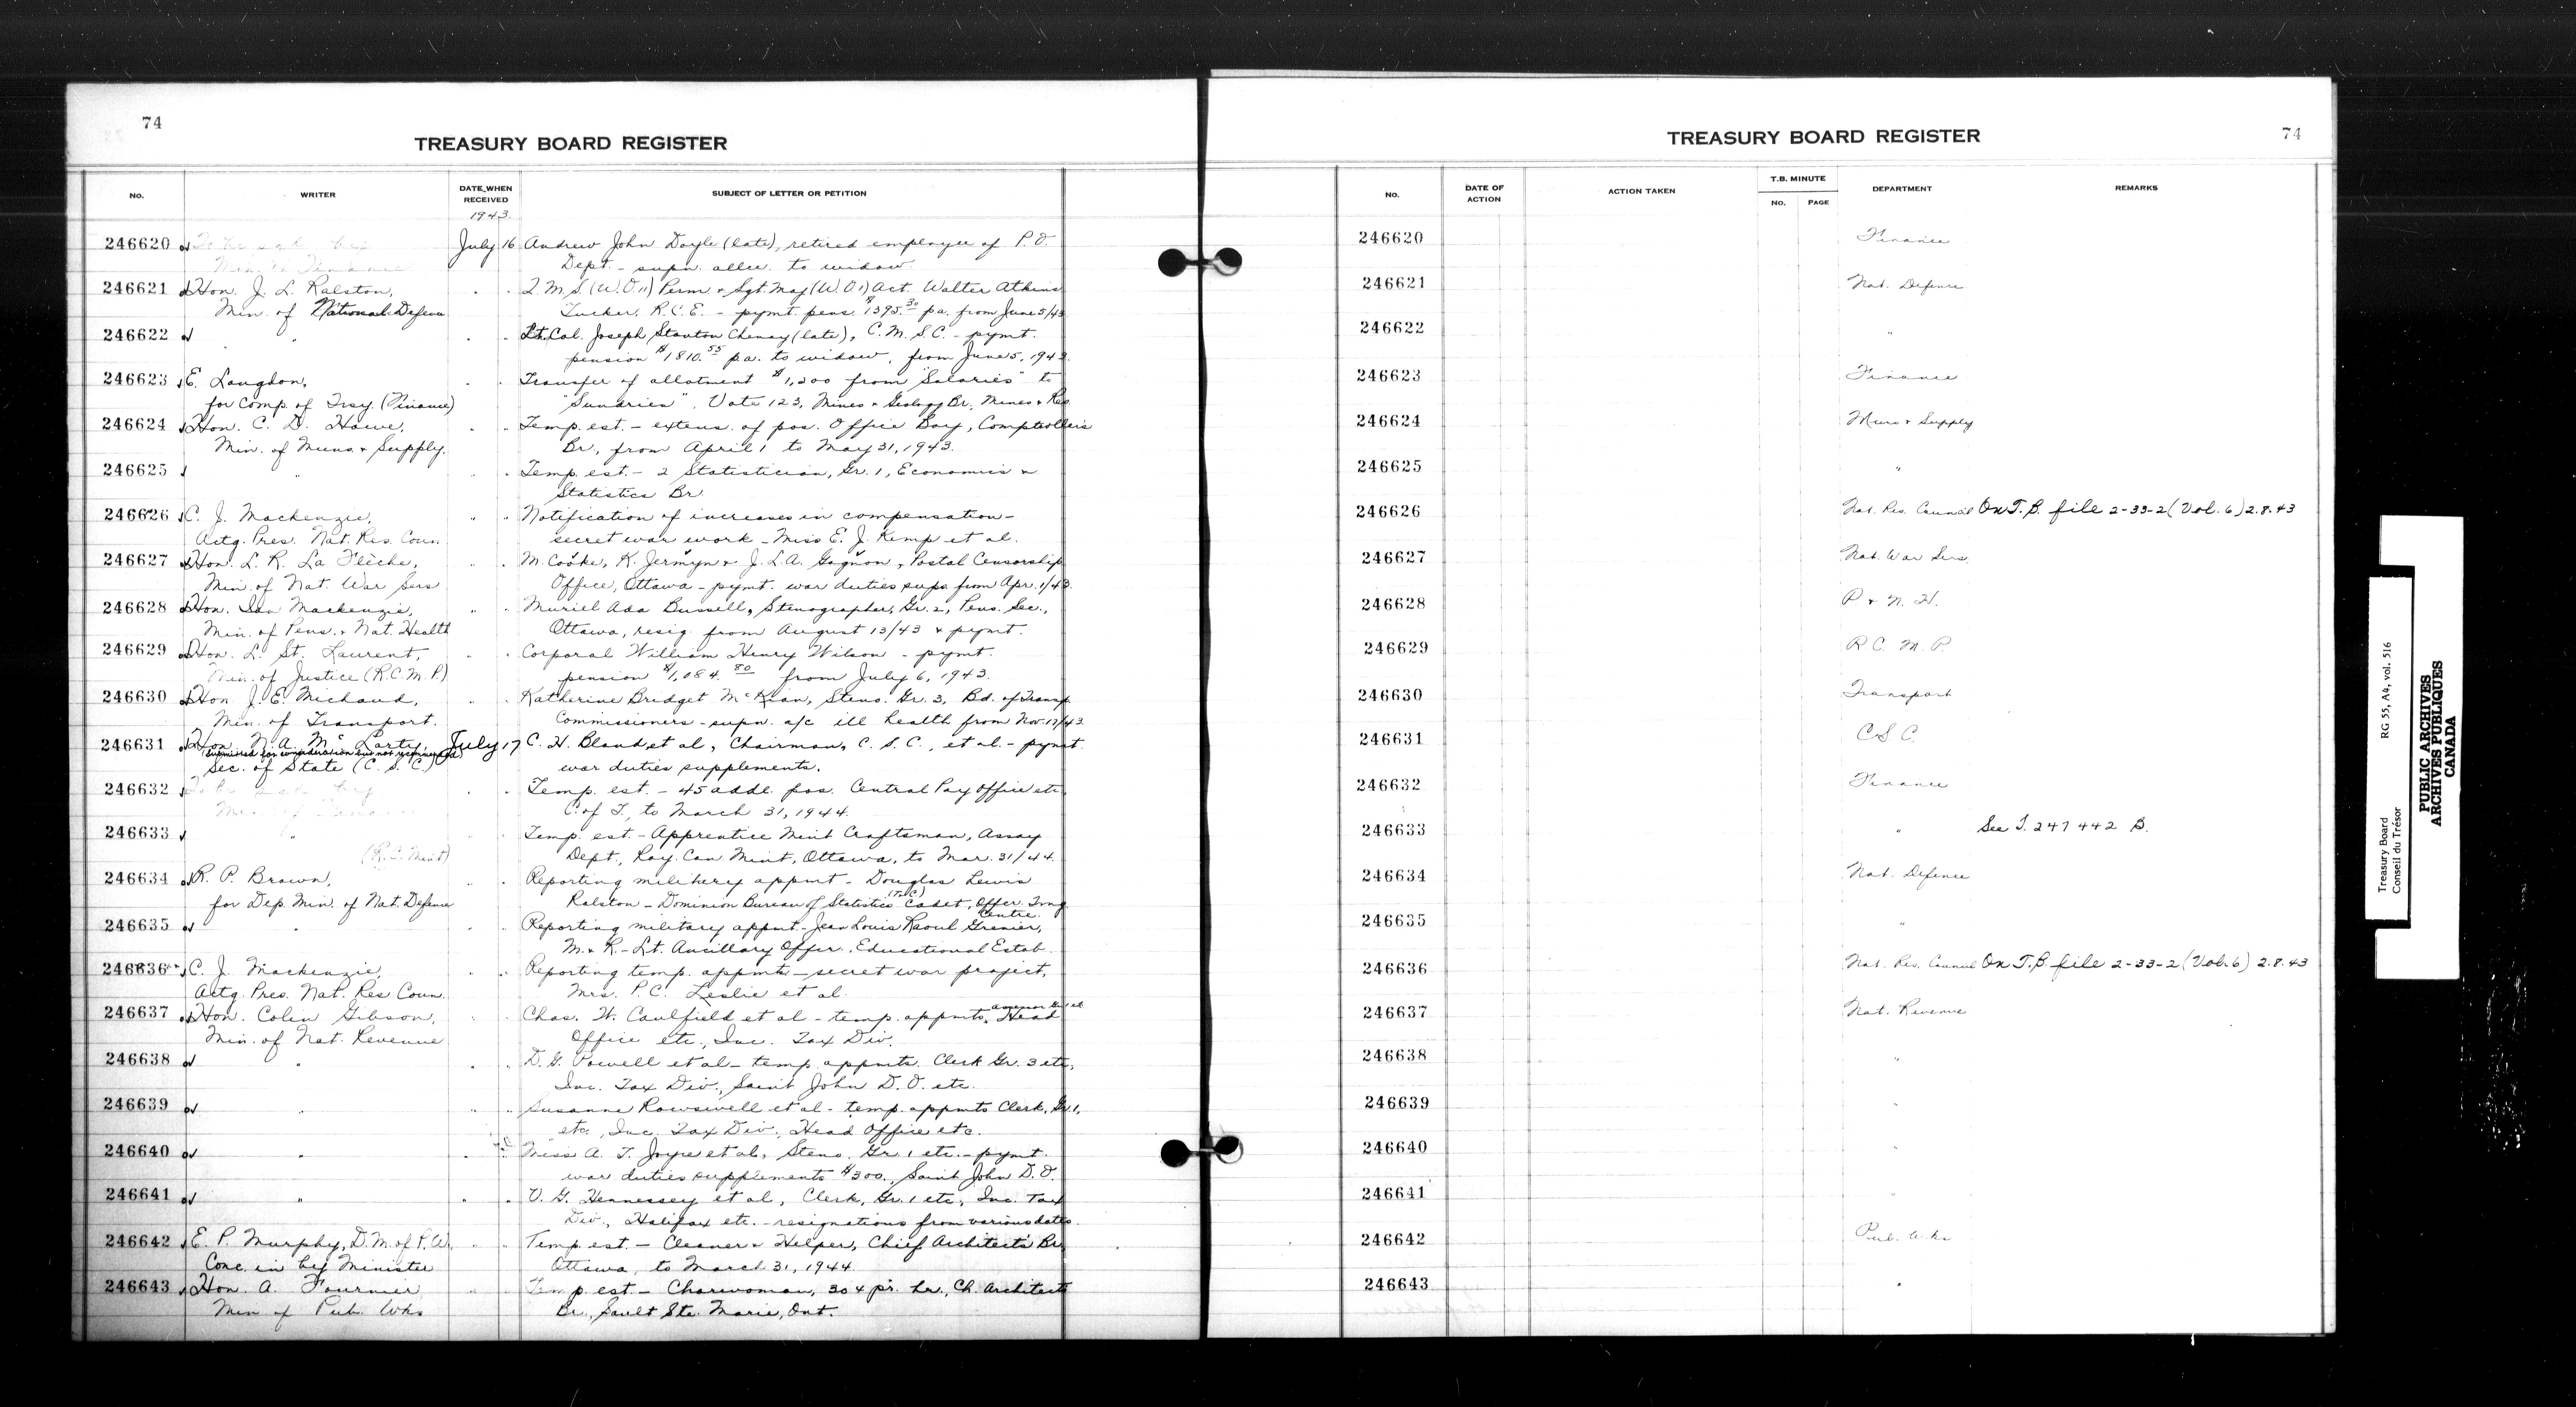 74
TREASURY BOARD REGISTER
NO. WRITER DATE WHEN RECEIVED SUBJECT OF LETTER OR PETITION
1943
246620 To be sgd. by July 16 Andrew John Doyle (late), retired employee of P.O.
Min. of Finance Dept. - supn. allce. to widow.
246621 Hon. J. L. Ralston, " " Q.M.S. (W.O.11) Perm. & Sgt. Maj (W.O.1) Act. Walter Atkins
Min. of National Defence Tucker, R.C.E. - pymt. pens. $1395.30 pa. from June 5/43
246622 " " " Lt. Col. Joseph Stanton Cheney (late), C.M.S.C. - pymt.
pension $1810.55 p.a. to widow, from June 5, 1943.
246623 E. Langdon, " " Transfer of allotment $1,200 from "Salaries" to
for Comp. of Trsy. (Finance) "Sundries". Vote 123, Mines & Geology Br., Mines & Res.
246624 Hon. C. D. Howe, " " Temp. est. - extens. of pos. Office Boy, Comptroller's
Min. of Muns. & Supply. Br., from April 1 to May 31, 1943.
246625 " " " Temp. est. - 2 Statistician, Gr. 1, Economics &
Statistics Br.
246626 C. J. Mackenzie, " " Notification of increases in compensation -
Actg. Pres. Nat. Res. Coun. secret war work - Miss E. J. Kemp et al.
246627 Hon. L. R. La Flèche, " " M. Cooke, K. Jermyn & J. L.A. Gagnon, Postal Censorship
Min. of Nat. War Sers Office, Ottawa - pymt. war duties supps. from Apr. 1/43.
246628 Hon. Ian Mackenzie, " " Muriel Ada Bussell, Stenographer, Gr. 2, Pens. Sec.,
Min. of Pens. & Nat. Health Ottawa, resig. from August 13/43 & pymt.
246629 Hon. L. St. Laurent, " " Corporal William Henry Wilson - pymt.
Min. of Justice (R.C.M.P.) pension $1,084.80 from July 6, 1943.
246630 Hon J. E. Michaud, " " Katherine Bridget McKian, Steno. Gr. 3, Bd. of Transp
Min. of Transport. Commissioners - supn. a/c ill health from Nov. 17/43.
246631 Hon. N. A. McLarty, July 17 C. H. Bland et al, Chairman, C. S. C., et al. - pymt.
(submitted for consideration but not recommended)
Sec. of State (C. S. C.) war duties supplements.
246632 To be sgd. by " " Temp. est. - 45 addl. pos. Central Pay Office etc
Min. of Finance C. of T., to March 31, 1944.
246633 " " " Temp. est. - Apprentice Mint Craftsman, Assay
(R.C. Mint) Dept., Roy. Can. Mint, Ottawa, to Mar. 31/44.
246634 R. P. Brown, " " Reporting military appmt - Douglas Lewis
for Dep. Min. of Nat. Defence Ralston - Dominion Bureau of Statistics (T. C) Cadet, Offer. Trng
Centre.
246635 " " " Reporting military appmt. - Jean Louis Raoul Grenier,
M. & R. - Lt. Ancillary Offer., Educational Estab.
246636 C. J. Mackenzie, " " Reporting temp. appmts - secret war project,
Actg. Pres. Nat. Res Coun. Mrs. P. C. Leslie et al.
246637 Hon. Colin Gibson, " " Chas. W. Caulfield et al - temp. appmts, Assessor Gr. 1 et. Head
Min. of Nat. Revenue Office etc., Inc. Tax Div.
246638 " " " D. G. Powell et al - temp. appmts. Clerk Gr. 3 etc,
Inc. Tax Div., Saint John D. O. etc.
246639 " " " Susanne Rowswell et al - temp. appmts Clerk, Gr. 1,
etc., Inc. Tax Div., Head Office etc.
246640 " " " Miss A. T. Joyce et al, Steno. Gr. 1 etc. - pymt.
war duties supplements $300., Saint John D. O.
246641 " " " V. G. Hennessey et al, Clerk, Gr. 1 etc, Inc. Tax
Div., Halifax etc. - resignations from various dates.
246642 E. P. Murphy, D.M. of P.W. " " Temp. est. - Cleaner & Helper, Chief Architect's Br.
Conc. in by Minister Ottawa, to March 31, 1944.
246643 Hon. A. Fournier " " Temp. est. - Charwoman, 30¢ pr. hr., Ch. Architects
Min of Pub. Wks Br., Sault Ste. Marie, Ont.
TREASURY BOARD REGISTER
74
NO. DATE OF ACTION ACTION TAKEN T.B. MINUTE NO. PAGE DEPARTMENT REMARKS
246620 Finance
246621 Nat. Defence
246622 "
246623 Finance
246624 Muns & Supply
246625 "
246626 Nat. Res. Council On T.B. file 2-33-2 (Vol. 6) 2.8.43
246627 Nat. War Sers.
246628 P. & N. H.
246629 R. C. M. P.
246630 Transport
246631 C. S. C.
246632 Finance
246633 " See T. 247442 B.
246634 Nat. Defence
246635 "
246636 Nat. Res. Council On T.B. file 2-33-2 (Vol. 6) 2.8.43
246637 Nat. Revenue
246638 "
246639 "
246640 "
246641 "
246642 Pub. Wks
246643 "
Treasury Board RG 55, A4, vol. 516
Conseil du Trésor
PUBLIC ARCHIVES
ARCHIVES PUBLIQUES
CANADA